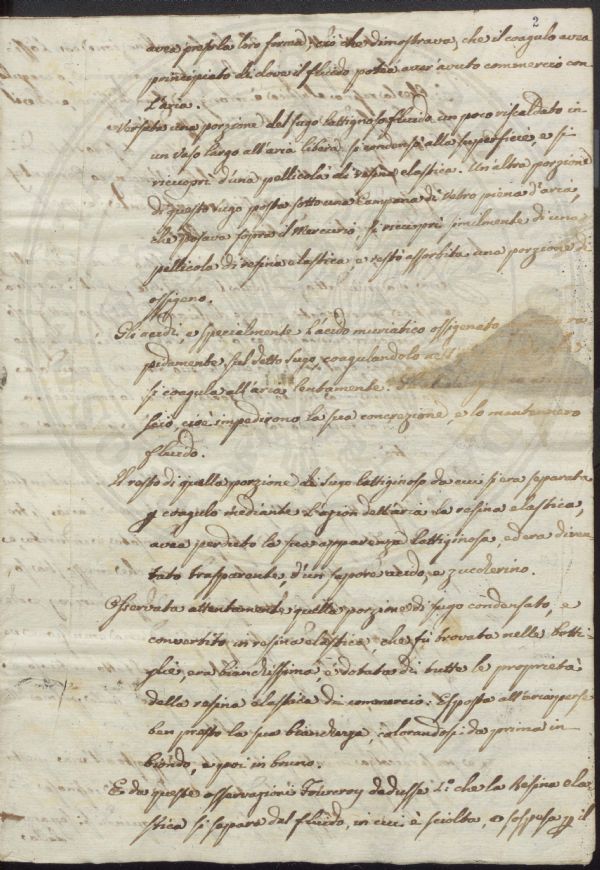 2
avea presa la loro forma; ciò che dimostrava, che il coagulo avea
principiato di dove il fluido potea aver avuto commercio con
l'aria.
Versata una porzione del sugo lattiginoso fluido un poco riscaldato in
un vaso largo all'aria libera si condensò alla superficie, e si
ricuoprì d'una pellicola di resina elastica. Un'altra porzione
di questo sugo posta sotto una Campana di Vetro piena d'aria,
che posava sopra il Mercurio, si ricuoprì similmente di una
pellicola di resina elastica, e restò assorbita una porzione di
ossigeno.
Gli acidi, e specialmente l'acido muriatico ossigenato ra
pidamente sul detto sugo, coagulandolo
si coagula all'aria lentamente.
cioè impedirono la sua concrezione, e lo mantennero
fluido.
Il resto di quella porzione di sugo lattiginoso da cui s'era separata
p coagulo mediante l'azion dell'aria la resina elastica,
avea perduto la sua apparenza lattiginosa, ed era diven
tato trasparente, d'un sapore acido, e zuccherino.
Osservata attentamente quella porzione di sugo condensato, e
convertito in resina elastica, che fù trovata nelle botti
glie, era bianchissima e dotata di tutte le proprietà
della resina elastica di commercio: Esposta all'aria perse
ben presto la sua bianchezza, colorandosi da prima in
biondo, e poi in bruno.
E da queste osservazioni Fourcroy dedusse 1.º che la Resina ela
stica si separa dal fluido, in cui è sciolta, o sospesa p il